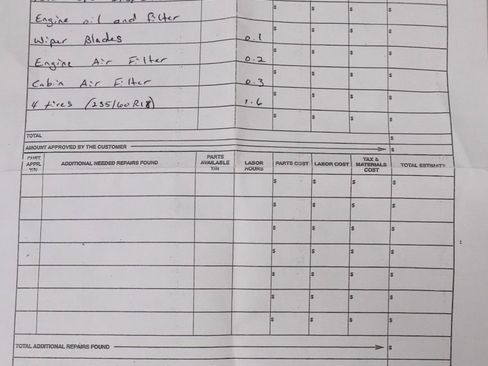 Engine oil and filter
Wiper Blades 0.1
Engine Air Filter 0.2
Cabin Air Filter 0.3
4 tires (235/60R18) 1.6
TOTAL $
AMOUNT APPROVED BY THE CUSTOMER $
CUST. APPR. Y/N ADDITIONAL NEEDED REPAIRS FOUND PARTS AVAILABLE Y/N LABOR HOURS PARTS COST LABOR COST TAX & MATERIALS COST TOTAL ESTIMATE
$ $ $ $
$ $ $ $
$ $ $ $
$ $ $ $
$ $ $ $
$ $ $ $
$ $ $ $
TOTAL ADDITIONAL REPAIRS FOUND $